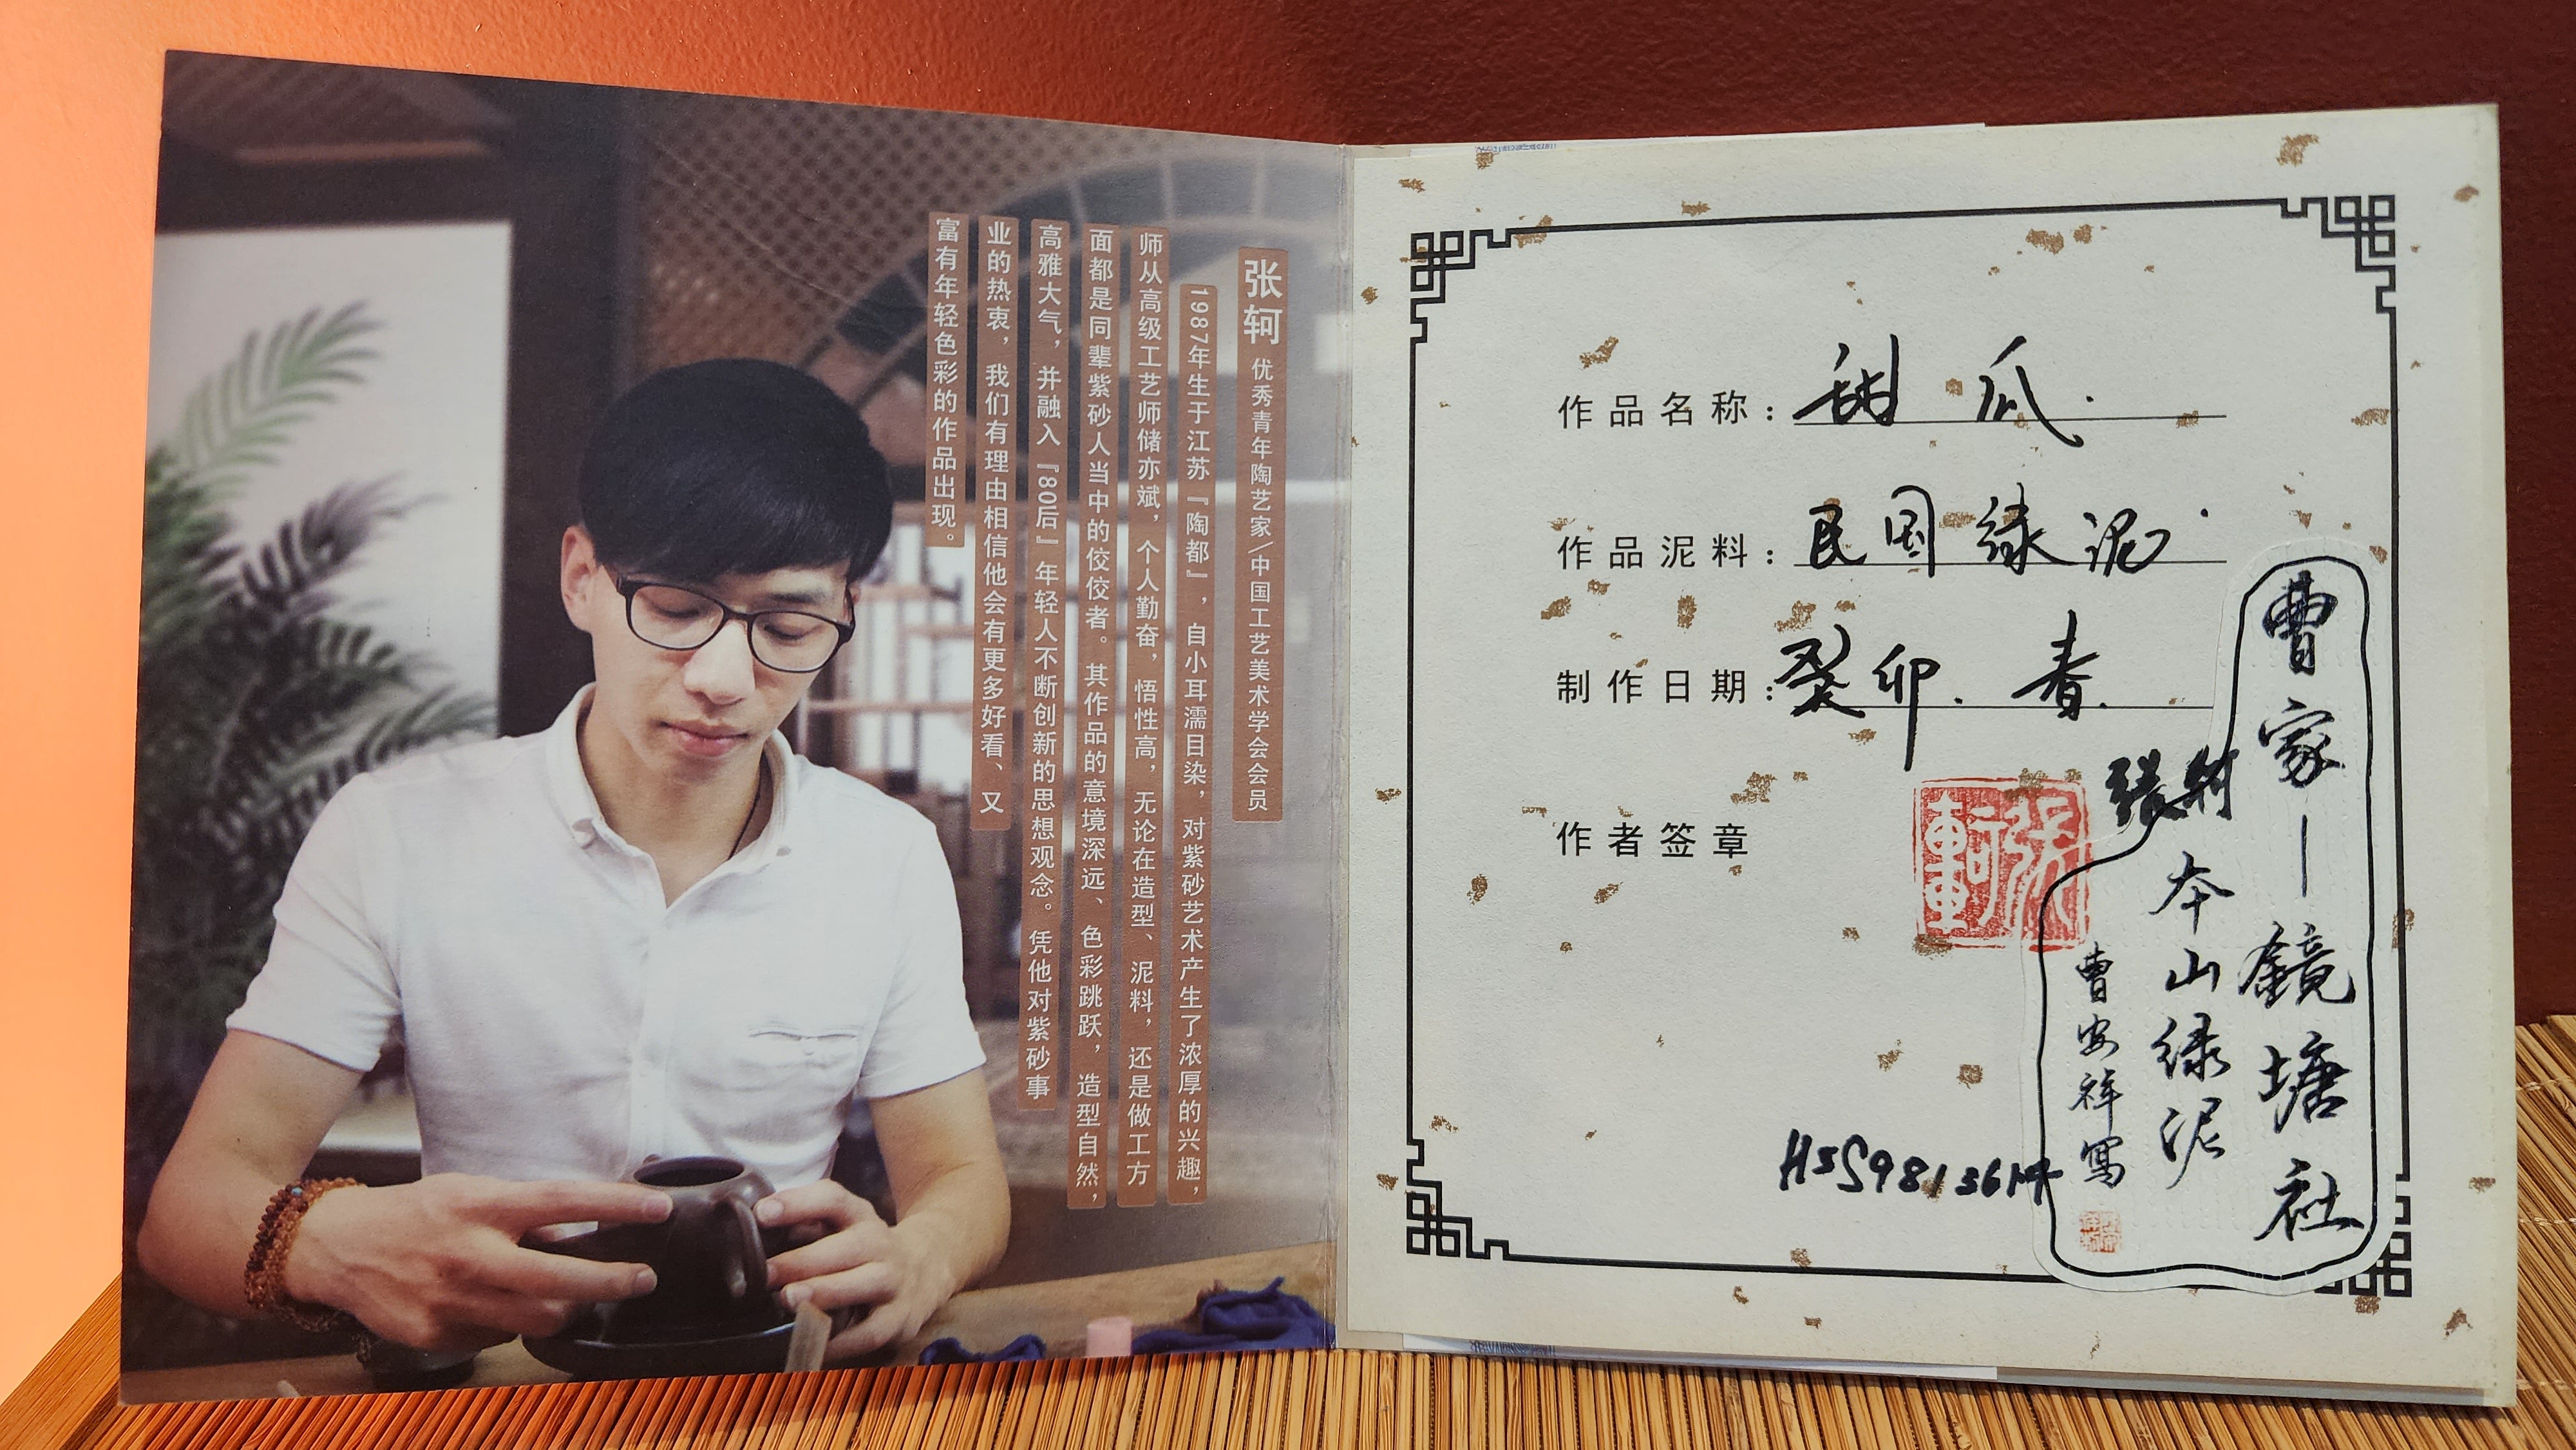 张轲 优秀青年陶艺家/中国工艺美术学会会员
1987年生于江苏『陶都』，自小耳濡目染，对紫砂艺术产生了浓厚的兴趣，
师从高级工艺师储亦斌，个人勤奋，悟性高，无论在造型、泥料，还是做工方
面都是同辈紫砂人当中的佼佼者。其作品的意境深远、色彩跳跃，造型自然，
高雅大气，并融入『80后』年轻人不断创新的思想观念。凭他对紫砂事
业的热衷，我们有理由相信他会有更多好看、又
富有年轻色彩的作品出现。
作品名称：甜瓜.
作品泥料：民国绿泥.
制作日期：癸卯.春.
作者签章
张轲
張軻
曹家—鏡塘社
本山绿泥
曹安祥寫